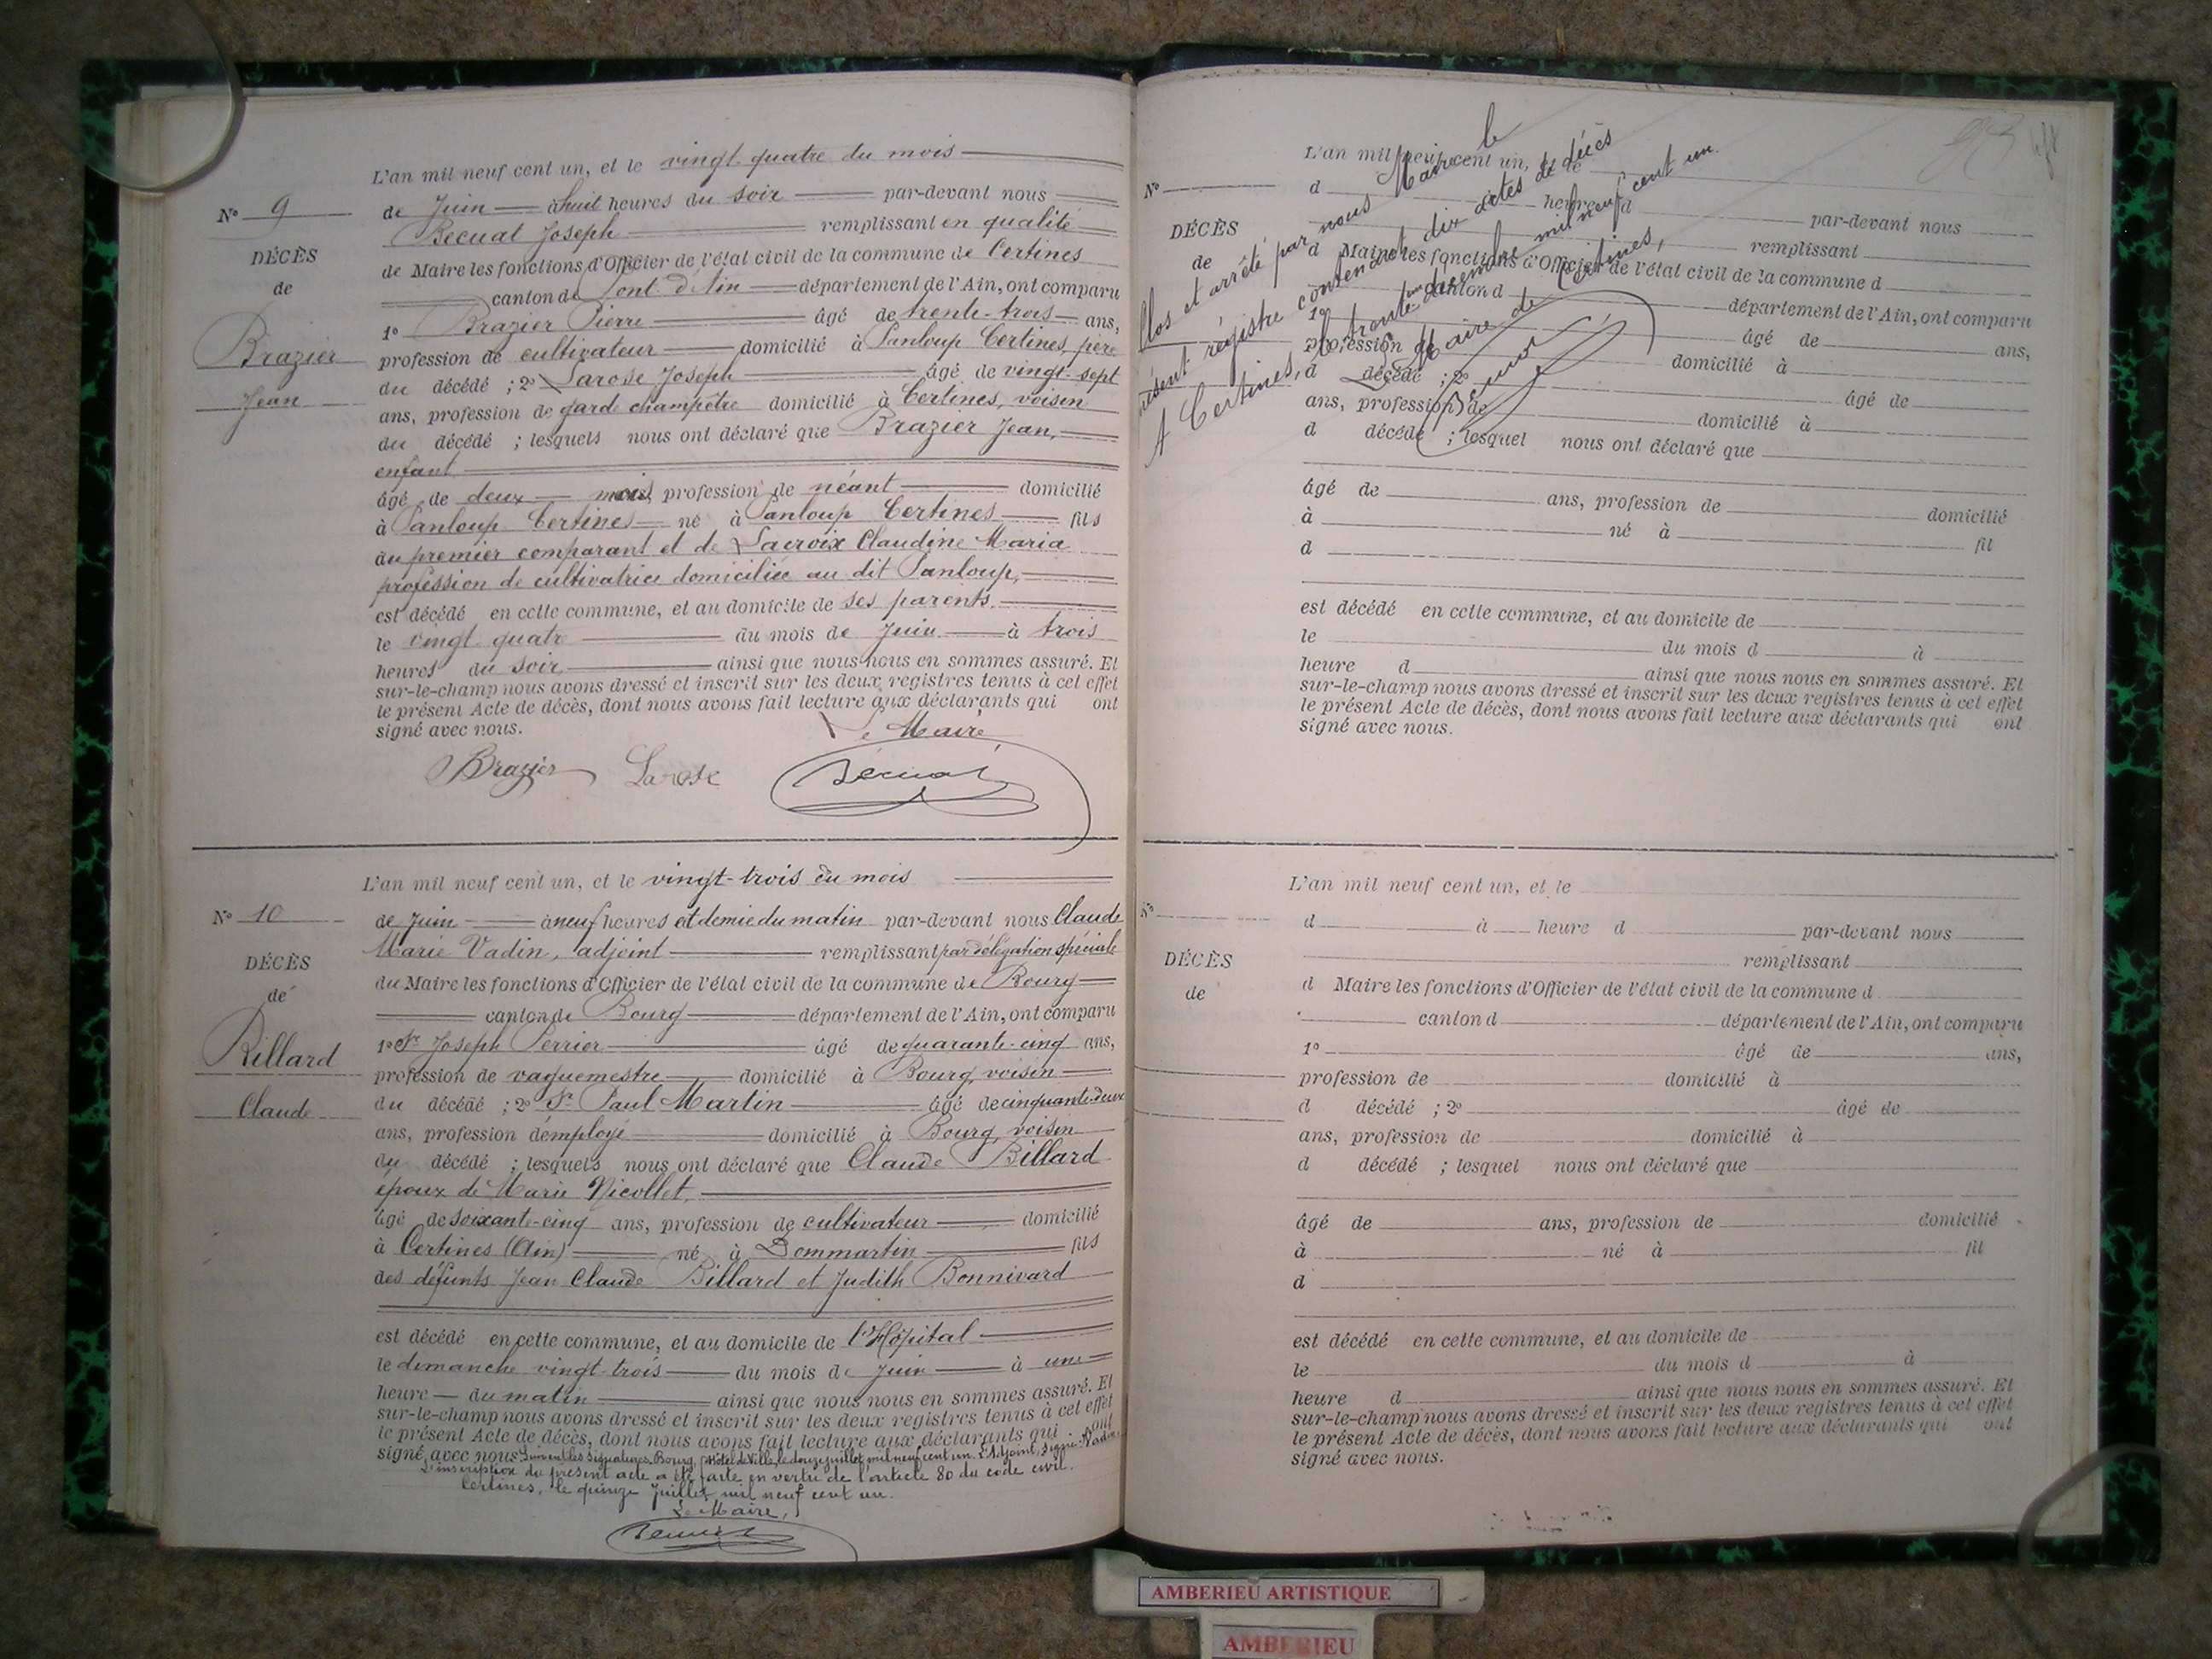 L'an mil neuf cent un, et le vingt-quatre du mois
N° 9
de Juin à huit heures du soir par-devant nous
Becuat Joseph remplissant en qualité
DÉCÈS
de Maire les fonctions d'Officier de l'état civil de la commune de Certines
de
canton de Pont d'Ain département de l'Ain, ont comparu
1° Brazier Pierre âgé de trente-trois ans,
Brazier
profession de cultivateur domicilié à Sanloup Certines, père
du décédé ; 2° Larose Joseph âgé de vingt-sept
Jean
ans, profession de garde champêtre domicilié à Certines, voisin
du décédé ; lesquels nous ont déclaré que Brazier Jean,
enfant
âgé de deux mois, profession de néant domicilié
à Sanloup Certines né à Sanloup Certines fils
du premier comparant et de Lacroix Claudine Maria
profession de cultivatrice domiciliée au dit Sanloup,
est décédé en cette commune, et au domicile de ses parents.
le vingt quatre du mois de Juin à trois
heures du soir ainsi que nous nous en sommes assuré. Et
sur-le-champ nous avons dressé et inscrit sur les deux registres tenus à cet effet
le présent Acte de décès, dont nous avons fait lecture aux déclarants qui ont
signé avec nous.
Le Maire
Brazier Larose Bécuat
L'an mil neuf cent un, et le vingt-trois du mois
N° 10
de Juin à neuf heures et demie du matin par-devant nous Claude
Marie Vadin, adjoint remplissant par délégation spéciale
DÉCÈS
du Maire les fonctions d'Officier de l'état civil de la commune de Bourg
de
canton de Bourg département de l'Ain, ont comparu
1° Sr Joseph Perrier âgé de quarante-cinq ans,
Billard
profession de vaguemestre domicilié à Bourg, voisin
Claude
du décédé ; 2° Sr Paul Martin âgé de cinquante-deux
ans, profession d'employé domicilié à Bourg, voisin
du décédé ; lesquels nous ont déclaré que Claude Billard
époux de Marie Nicollet,
âgé de soixante-cinq ans, profession de cultivateur domicilié
à Certines (Ain) né à Dommartin fils
des défunts Jean Claude Billard et Judith Bonnivard
est décédé en cette commune, et au domicile de l'Hôpital
le dimanche vingt-trois du mois de Juin à une
heure du matin ainsi que nous nous en sommes assuré. Et
sur-le-champ nous avons dressé et inscrit sur les deux registres tenus à cet effet
le présent Acte de décès, dont nous avons fait lecture aux déclarants qui ont
signé avec nous. Suivent les signatures. Bourg, Hôtel de Ville, le douze juillet mil neuf cent un. L'Adjoint, signé: Vadin
L'inscription du présent acte a été faite en vertu de l'article 80 du code civil.
Certines, le quinze Juillet mil neuf cent un.
Le Maire,
Becuat
Clos et arrêté par nous Maire le
présent registre contenant dix actes de décès
A Certines, le trente un décembre mil neuf cent un.
Le Maire de Certines,
Becuat
L'an mil neuf cent un, et le
N°
d heure d par-devant nous
DÉCÈS
remplissant
de
d Maire les fonctions d'Officier de l'état civil de la commune d
canton d département de l'Ain, ont comparu
1° âgé de ans,
profession de domicilié à
d décédé ; 2° âgé de
ans, profession de domicilié à
d décédé ; lesquel nous ont déclaré que
âgé de ans, profession de domicilié
à né à fil
d
est décédé en cette commune, et au domicile de
le du mois d à
heure d ainsi que nous nous en sommes assuré. Et
sur-le-champ nous avons dressé et inscrit sur les deux registres tenus à cet effet
le présent Acte de décès, dont nous avons fait lecture aux déclarants qui ont
signé avec nous.
L'an mil neuf cent un, et le
N°
d à heure d par-devant nous
remplissant
DÉCÈS
d Maire les fonctions d'Officier de l'état civil de la commune d
de
canton d département de l'Ain, ont comparu
1° âgé de ans,
profession de domicilié à
d décédé ; 2° âgé de
ans, profession de domicilié à
d décédé ; lesquel nous ont déclaré que
âgé de ans, profession de domicilié
à né à fil
d
est décédé en cette commune, et au domicile de
le du mois d à
heure d ainsi que nous nous en sommes assuré. Et
sur-le-champ nous avons dressé et inscrit sur les deux registres tenus à cet effet
le présent Acte de décès, dont nous avons fait lecture aux déclarants qui ont
signé avec nous.
AMBERIEU ARTISTIQUE
AMBERIEU